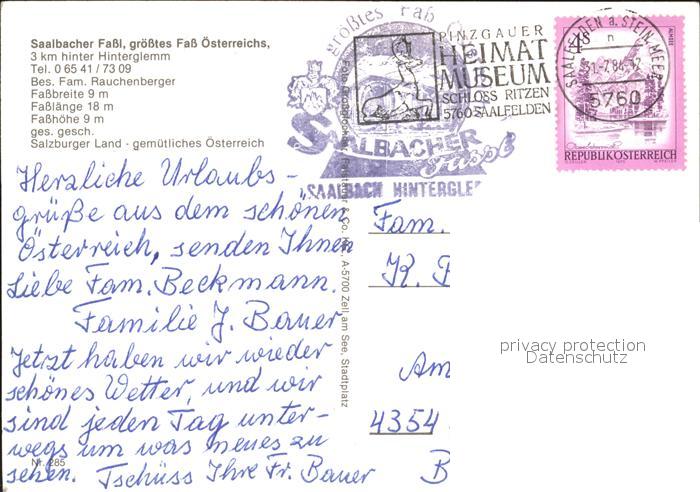 Saalbacher Faßl, größtes Faß Österreichs,
3 km hinter Hinterglemm
Tel. 0 65 41 / 73 09
Bes. Fam. Rauchenberger
Faßbreite 9 m
Faßlänge 18 m
Faßhöhe 9 m
ges. gesch.
Salzburger Land - gemütliches Österreich
größtes Faß
SAALBACHER
SAALBACH HINTERGLE
PINZGAUER
HEIMAT
MUSEUM
SCHLOSS RITZEN
5760 SAALFELDEN
SAALFELDEN a. STEIN. MEER
n
5760
4S
ALMSEE
REPUBLIK ÖSTERREICH
Herzliche Urlaubs-
grüße aus dem schönen
Österreich, senden Ihnen
Liebe Fam. Beckmann.
Familie J. Bauer
Jetzt haben wir wieder
schönes Wetter, und wir
sind jeden Tag unter-
wegs um was neues zu
sehen. Tschüss Ihre Fr. Bauer
Nr. 285
& Co. KG, A-5700 Zell am See, Stadtplatz
Fam.
K.
Am
4354
B
privacy protection
Datenschutz